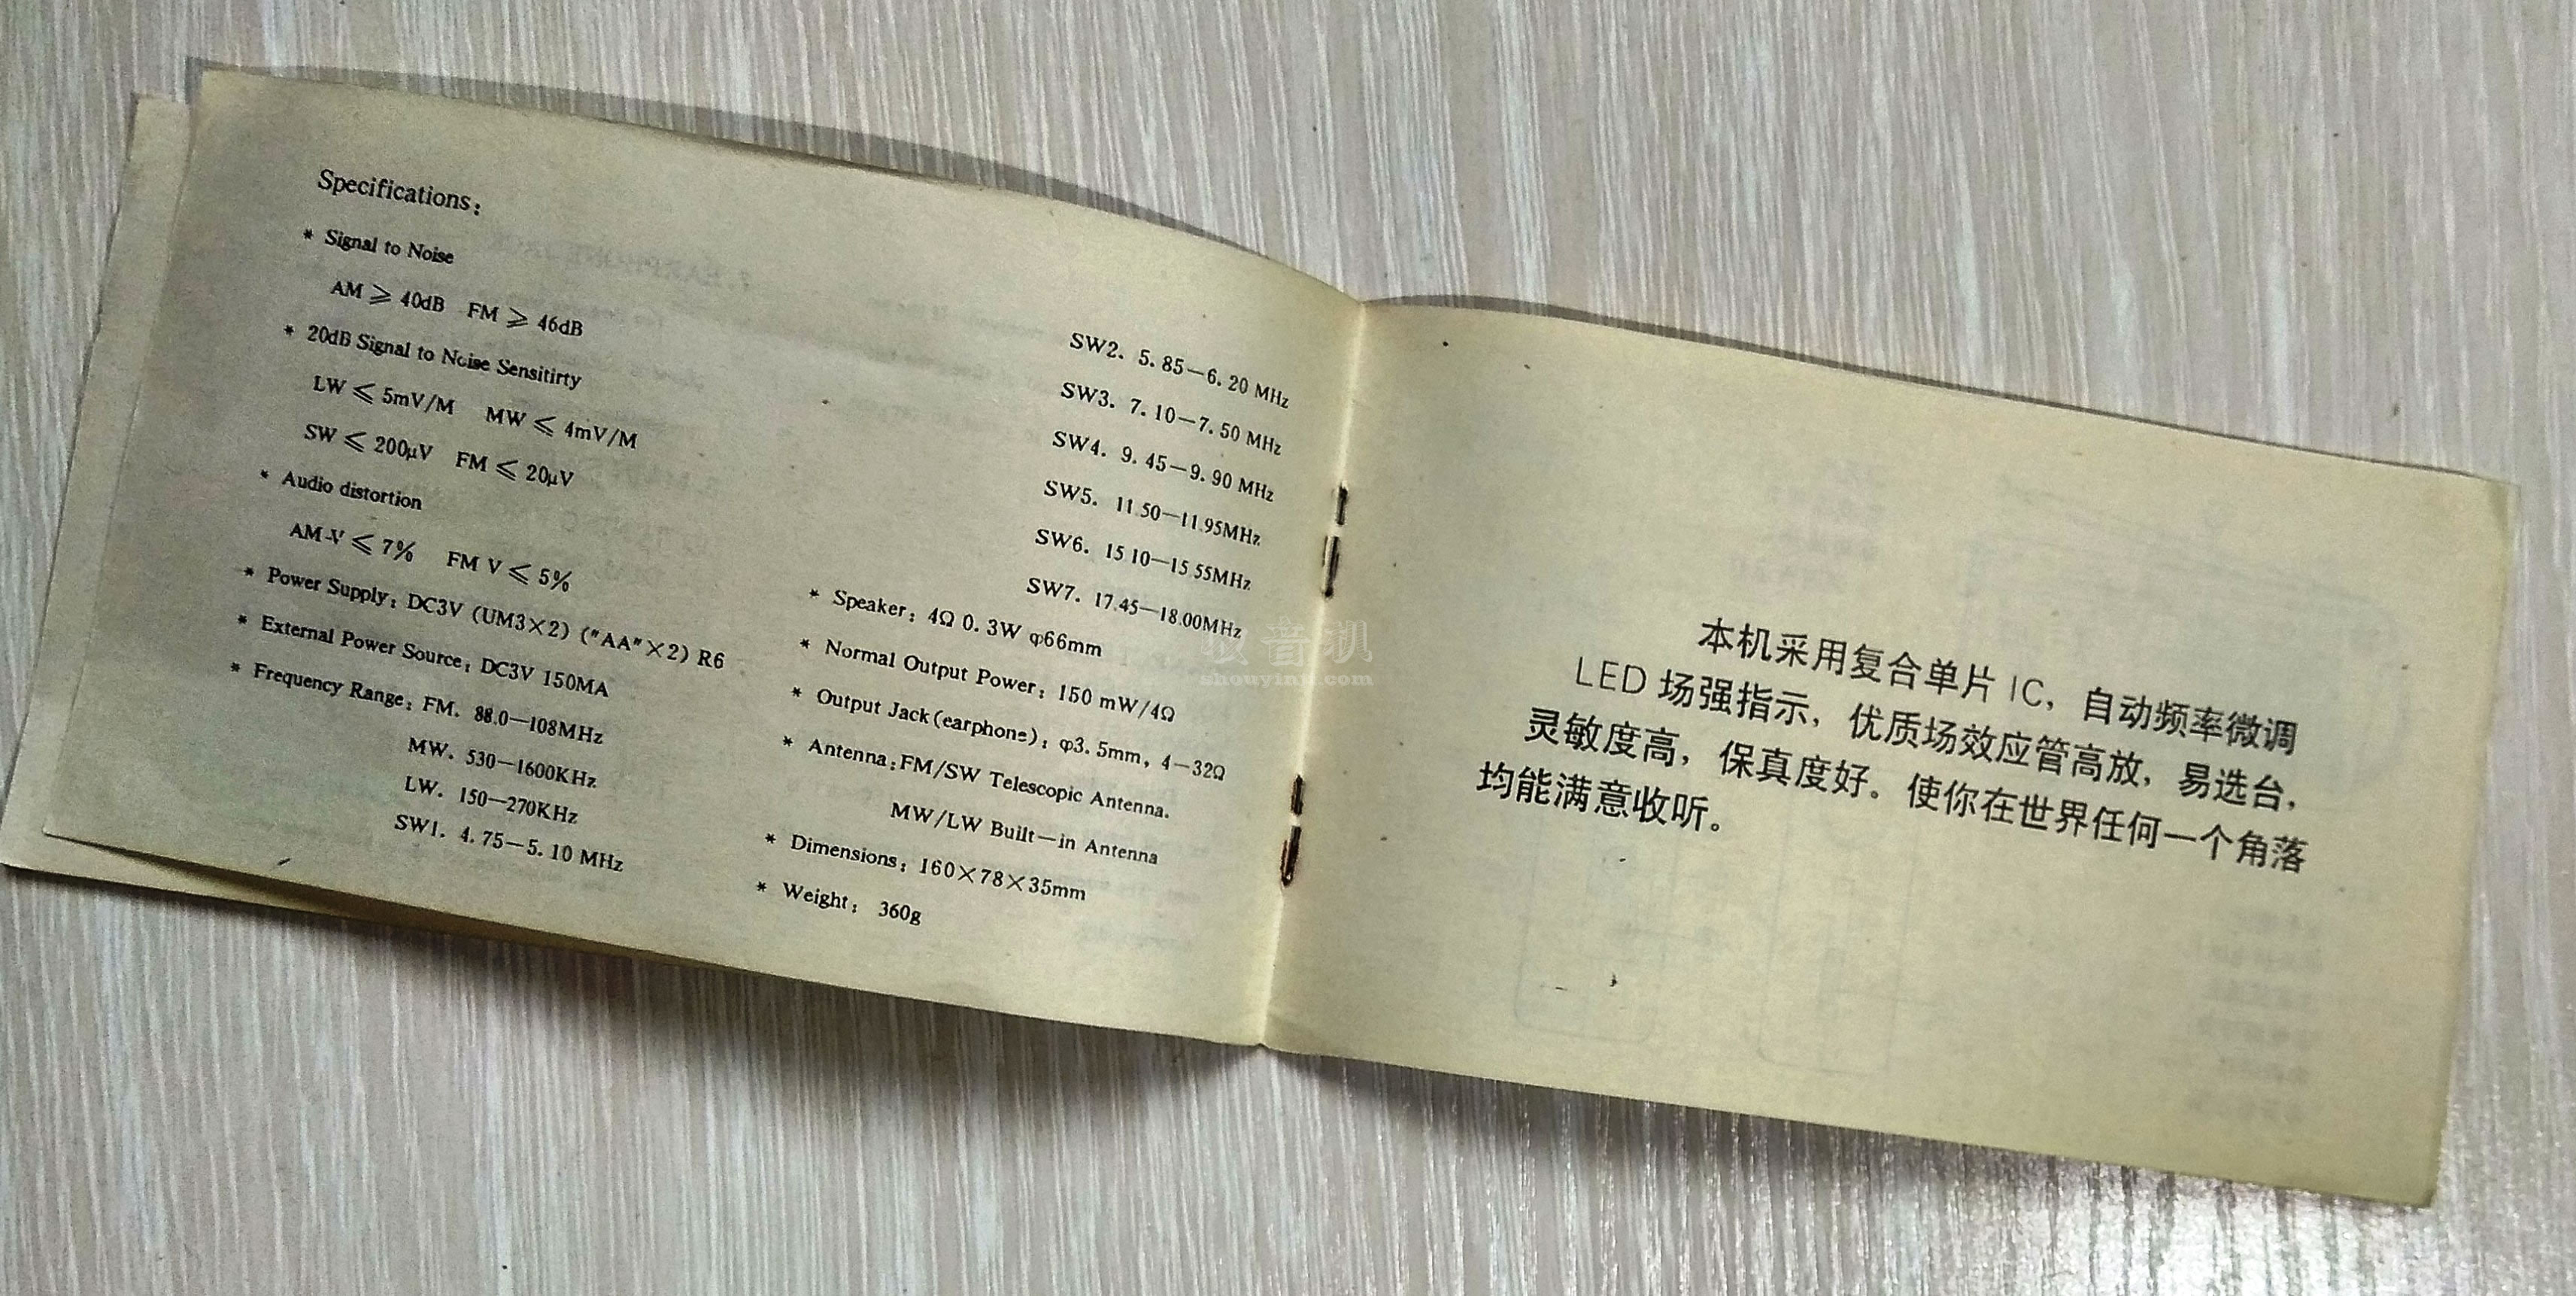 Specifications:
* Signal to Noise
AM ⩾ 40dB FM ⩾ 46dB
* 20dB Signal to Noise Sensitirty
LW ⩽ 5mV/M MW ⩽ 4mV/M
SW ⩽ 200μV FM ⩽ 20μV
* Audio distortion
AM-V ⩽ 7% FM V ⩽ 5%
* Power Supply: DC3V (UM3×2) ("AA"×2) R6
* External Power Source: DC3V 150MA
* Frequency Range: FM. 88.0—108MHz
MW. 530—1600KHz
LW. 150—270KHz
SW1. 4.75—5.10 MHz
SW2. 5.85—6.20 MHz
SW3. 7.10—7.50 MHz
SW4. 9.45—9.90 MHz
SW5. 11.50—11.95MHz
SW6. 15 10—15.55MHz
SW7. 17.45—18.00MHz
* Speaker: 4Ω 0.3W φ66mm
* Normal Output Power: 150 mW/4Ω
* Output Jack(earphone): φ3.5mm, 4—32Ω
* Antenna:FM/SW Telescopic Antenna.
MW/LW Built—in Antenna
* Dimensions: 160×78×35mm
* Weight: 360g
收音机
shouyinji.com
本机采用复合单片 IC，自动频率微调
LED 场强指示，优质场效应管高放，易选台，
灵敏度高，保真度好。使你在世界任何一个角落
均能满意收听。